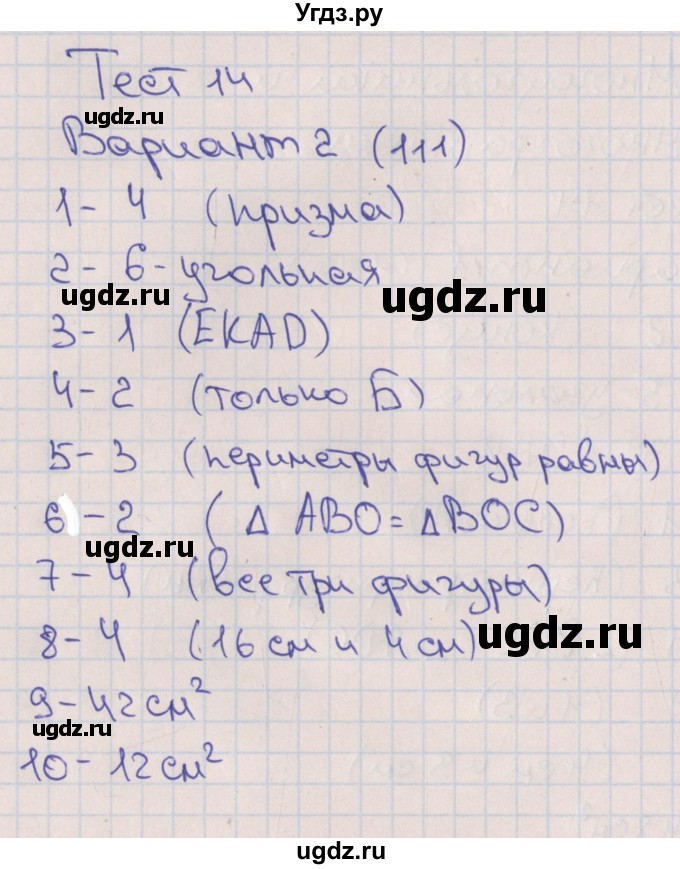 Угдз.ру
Тест 14
ugdz.ru
Вариант 2 (111)
1 - 4 (призма)
2 - 6-угольная
ugdz.ru
ugdz.ru
3 - 1 (EKAD)
4 - 2 (только Б)
5 - 3 (периметры фигур равны)
6) - 2 (Δ ABO = Δ BOC)
ugdz.ru
7 - 4 (все три фигуры)
8 - 4 (16 см и 4 см)
ugdz.ru
9 - 42 см²
ugdz.ru
10 - 12 см²
ugdz.ru